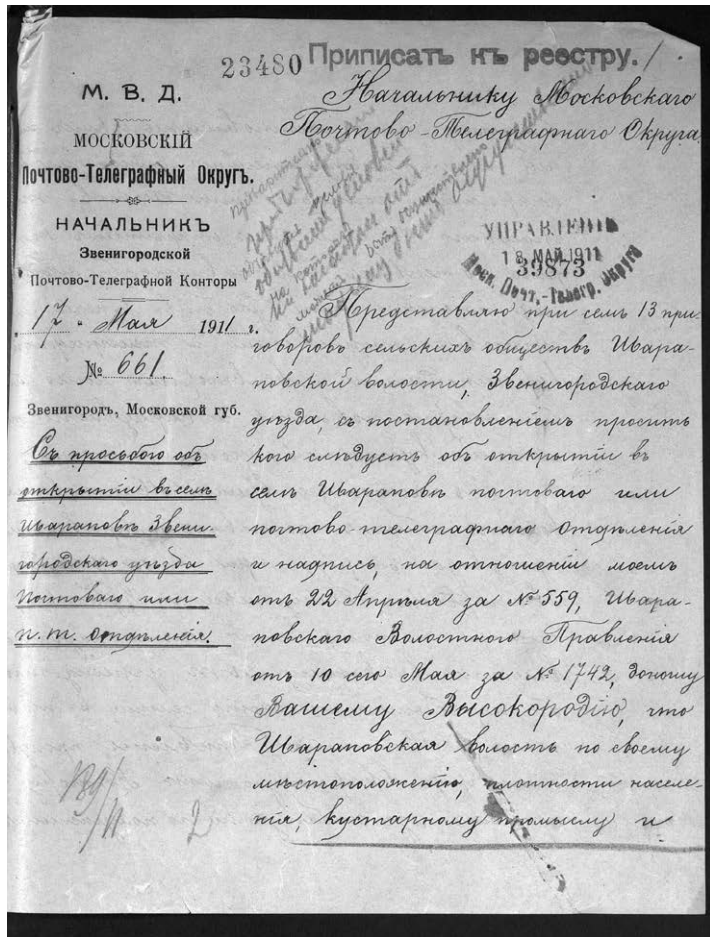 23480 Приписать къ реестру. 1
М. В. Д.
МОСКОВСКІЙ
Почтово-Телеграфный Округъ.
НАЧАЛЬНИКЪ
Звенигородской
Почтово-Телеграфной Конторы
17 " Мая 1911 г.
№ 661.
Звенигородъ, Московской губ.
Съ просьбою объ
открытіи въ селѣ
Шараповѣ Звени-
городскаго уѣзда
Почтоваго или
п. т. Отдѣленія.
139/11 2
Начальнику Московскаго
Почтово-Телеграфнаго Округа.
УПРАВЛЕНІЕ
18 МАЙ 1911
39873
Моск. Почт.-Телегр. Округа
Представляю при семъ 13 при-
говоровъ сельскихъ обществъ Шара-
повской волости, Звенигородскаго
уѣзда, съ постановленіемъ просить
кого слѣдуетъ объ открытіи въ
селѣ Шараповѣ почтоваго или
почтово-телеграфнаго отдѣленія
и надпись, на отношеніи моемъ
отъ 22 Апрѣля за № 559, Шара-
повскаго Волостного Правленія
отъ 10 сего Мая за № 1742, доношу
Вашему Высокородію, что
Шараповская волость по своему
мѣстоположенію, плотности населе-
нія, кустарному промыслу и